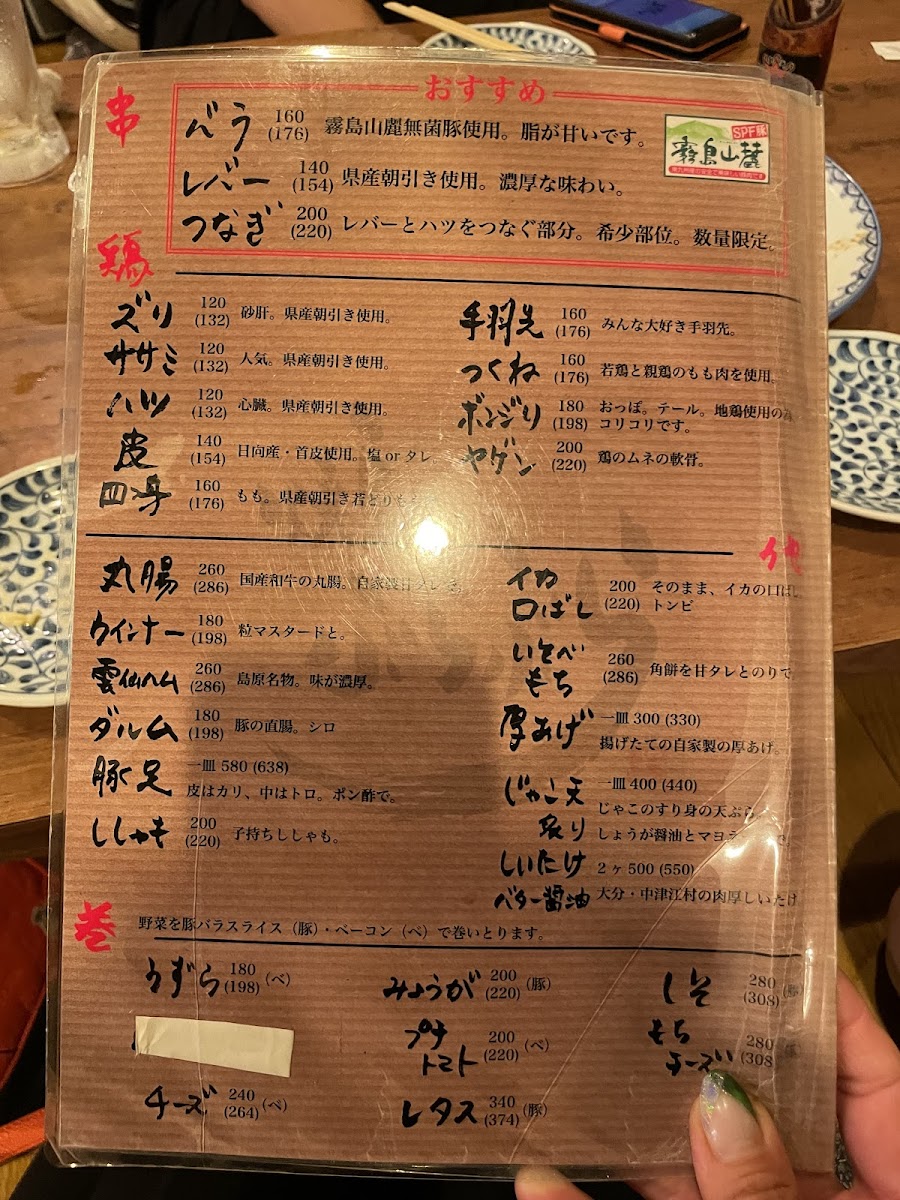 串
おすすめ
バラ 160 (176) 霧島山麓無菌豚使用。脂が甘いです。
SPF豚
霧島山麓
レバー 140 (154) 県産朝引き使用。濃厚な味わい。
つなぎ 200 (220) レバーとハツをつなぐ部分。希少部位。数量限定。
鶏
ズリ 120 (132) 砂肝。県産朝引き使用。
ササミ 120 (132) 人気。県産朝引き使用。
ハツ 120 (132) 心臓。県産朝引き使用。
皮 140 (154) 日向産・首皮使用。塩 or タレ
四つ身 160 (176) もも。県産朝引き若どりもも
手羽先 160 (176) みんな大好き手羽先。
つくね 160 (176) 若鶏と親鶏のもも肉を使用。
ボンジリ 180 (198) おっぽ。テール。地鶏使用の為
コリコリです。
ヤゲン 200 (220) 鶏のムネの軟骨。
丸腸 260 (286) 国産和牛の丸腸。自家製甘
ウインナー 180 (198) 粒マスタードと。
雲仙ハム 260 (286) 島原名物。味が濃厚。
ダルム 180 (198) 豚の直腸。シロ
豚足 一皿 580 (638)
皮はカリ、中はトロ。ポン酢で。
ししゃも 200 (220) 子持ちししゃも。
他
イカ
口ばし 200 (220) そのまま、イカの口ばし
トンビ
いそべ
もち 260 (286) 角餅を甘タレとのりで
厚あげ 一皿 300 (330)
揚げたての自家製の厚あげ。
じゃこ天
炙り 一皿 400 (440)
じゃこのすり身の天ぷら。
しょうが醤油とマヨ
しいたけ
バター醤油 2ヶ 500 (550)
大分・中津江村の肉厚しいたけ
巻
野菜を豚バラスライス（豚）・ベーコン（ベ）で巻いとります。
うずら 180 (198) （ベ）
みょうが 200 (220) （豚）
しそ 280 (308) （豚）
プチ
トマト 200 (220) （ベ）
もち
チーズ 280 (308
チーズ 240 (264) （ベ）
レタス 340 (374) （豚）